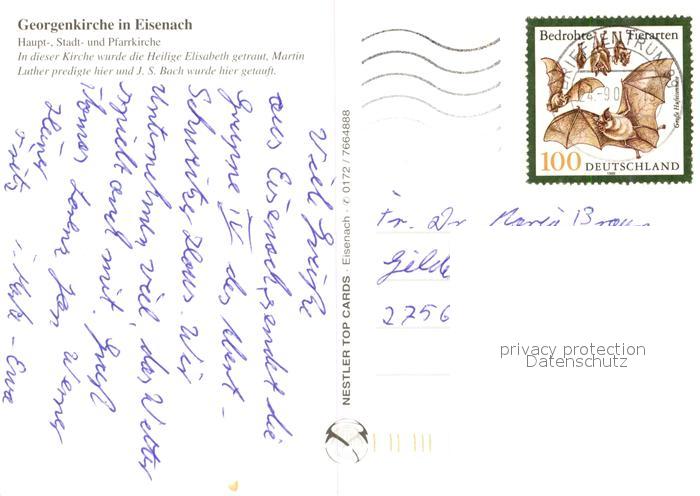 Georgenkirche in Eisenach
Haupt-, Stadt- und Pfarrkirche
In dieser Kirche wurde die Heilige Elisabeth getraut, Martin
Luther predigte hier und J. S. Bach wurde hier getauft.
Viele Grüße
aus Eisenach sendet die
Gruppe IV des Albert-
Schweitzer Haus. Wir
unternehmen viel, das Wetter
spielt auch mit. Gruß
NESTLER TOP CARDS · Eisenach · ✆ 0172 / 7664888
Bedrohte Tierarten
Große Hufeisennase
100 DEUTSCHLAND
1999
BRIEFZENTRUM
Fr. Dr. Maria Braun
Gilde
2756
privacy protection
Datenschutz